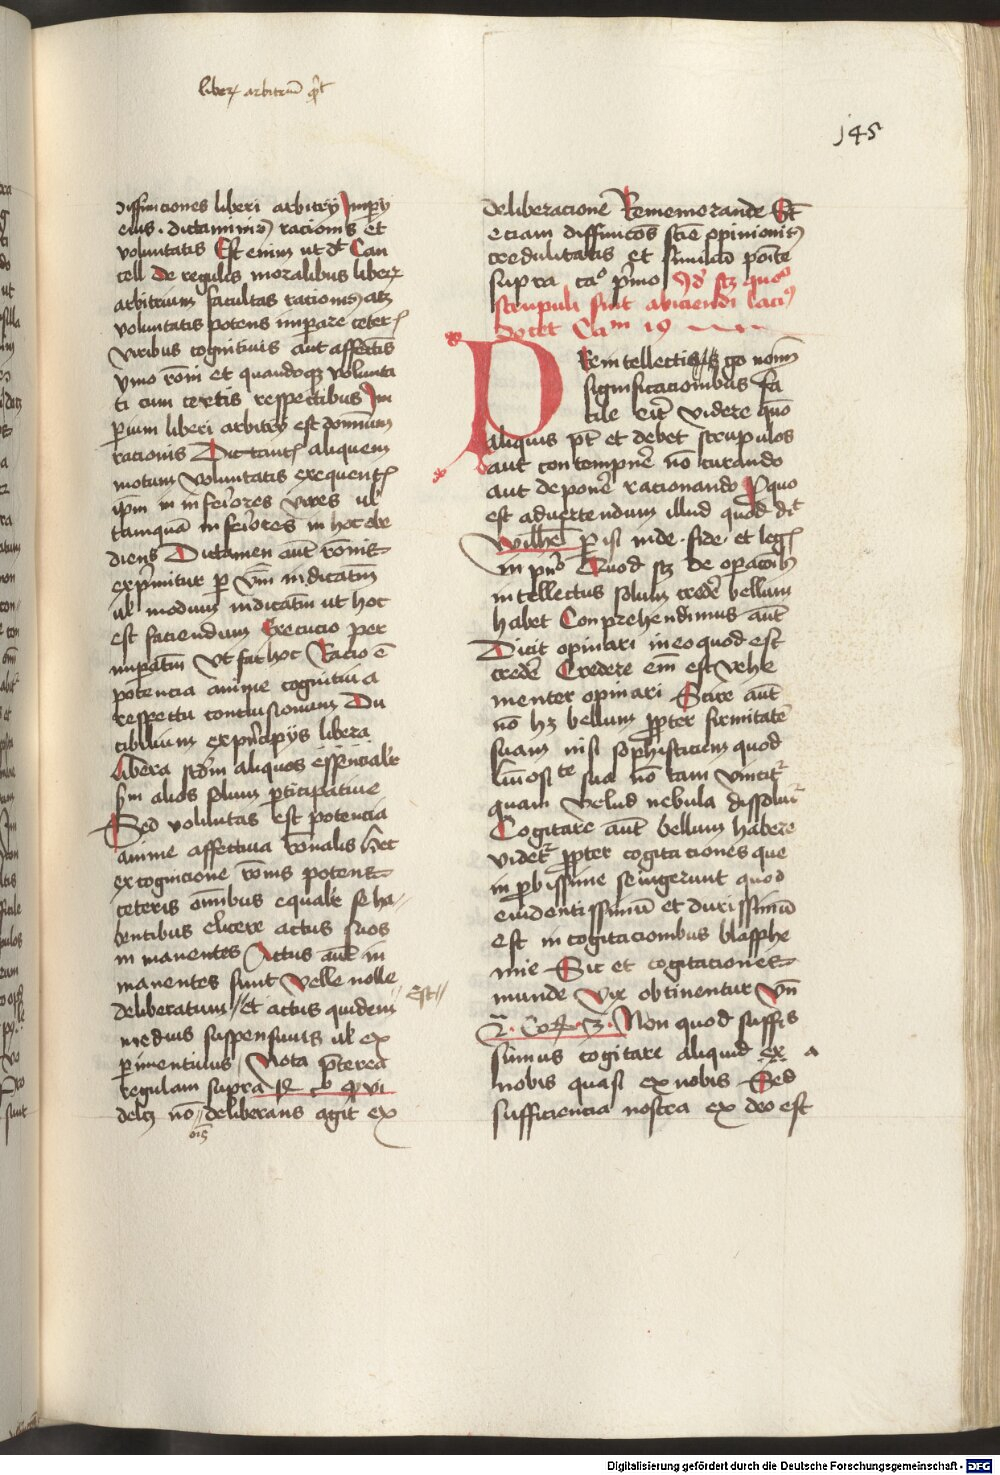 liberum arbitrium
145
diffiniciones liberi arbitrij Imperij
eius · dictaminis racionis et
voluntatis Est enim ut dt Can
cell de regulis moralibus liberum
arbitrium facultas racionis atque
voluntatis potens imperare ceteris
viribus cognitiuis aut affectiuis
ymo roni et quandoque volunta
ti cum certis respectibus Im
perium liberi arbitrij est dominium
racionis Dictantis aliquem
motum voluntatis exequentis
ipsum in inferiores vires ul
tamquam inferiores in hoc obe
diens Dictamen autem ronis
exprimitur per verbum indicatiuum
ul modum indicatiuum ut hoc
est faciendum Execucio per
imperatiuum vt fac hoc Racio est
potencia anime cognitiua
respectu conclusionum Du
cibilium ex principijs libera
libera secundum aliquos essencialiter
secundum alios solum participatiue
Sed voluntas est potencia
anime affectiua racionalis habet
ex cognicione ronis potens
ceteris omnibus equaliter se ha
bentibus elicere actus suos
in manentes Actus autem in
manentes sunt velle nolle
deliberatum // et actus quidem
Est //
medius suspensiuus ul ex
perimentiuus Nota preterea
regulam supra
delicet non // deliberans agit ex
omnis
deliberacione Rememorande Sunt
eciam diffiniciones scie opinionis
credulitatis et similium posite
supra capitulo primo Id scilicet quomodo
scrupuli sint abiciendi laci
docet Cam 19
PRe intellectis igitur nominum
significacionibus fa
cile erit videre quomodo
aliquis potest et debet scrupulos
aut contempnere non curando
aut deponere racionando Pro quo
est aduertendum illud quod dicit
Wilhel paris in de · fide · et leg
in principio Quod scilicet de operacionibus
intellectus solum credere bellum
habet Conprehendimus autem
Dicit opinari in eo quod est
credere Credere enim est vehe
menter opinari Scire autem
non habet bellum propter firmitatem
suam nisi sophisticum quod
luminositate sua non tam vincitur
quam velud nebula dissoluitur
Cogitare autem bellum habere
videtur propter cogitaciones que
inprobissime se ingerunt quod
euidentissimum et durissimum
est in cogitacionibus blasphe
mie Sic et cogitaciones
munde vix obtinentur vnde
2 · Cor · 3 · Non quod suffi
simus cogitare aliquid ex a
nobis quasi ex nobis Sed
sufficiencia nostra ex deo est
Digitalisierung gefördert durch die Deutsche Forschungsgemeinschaft - DFG